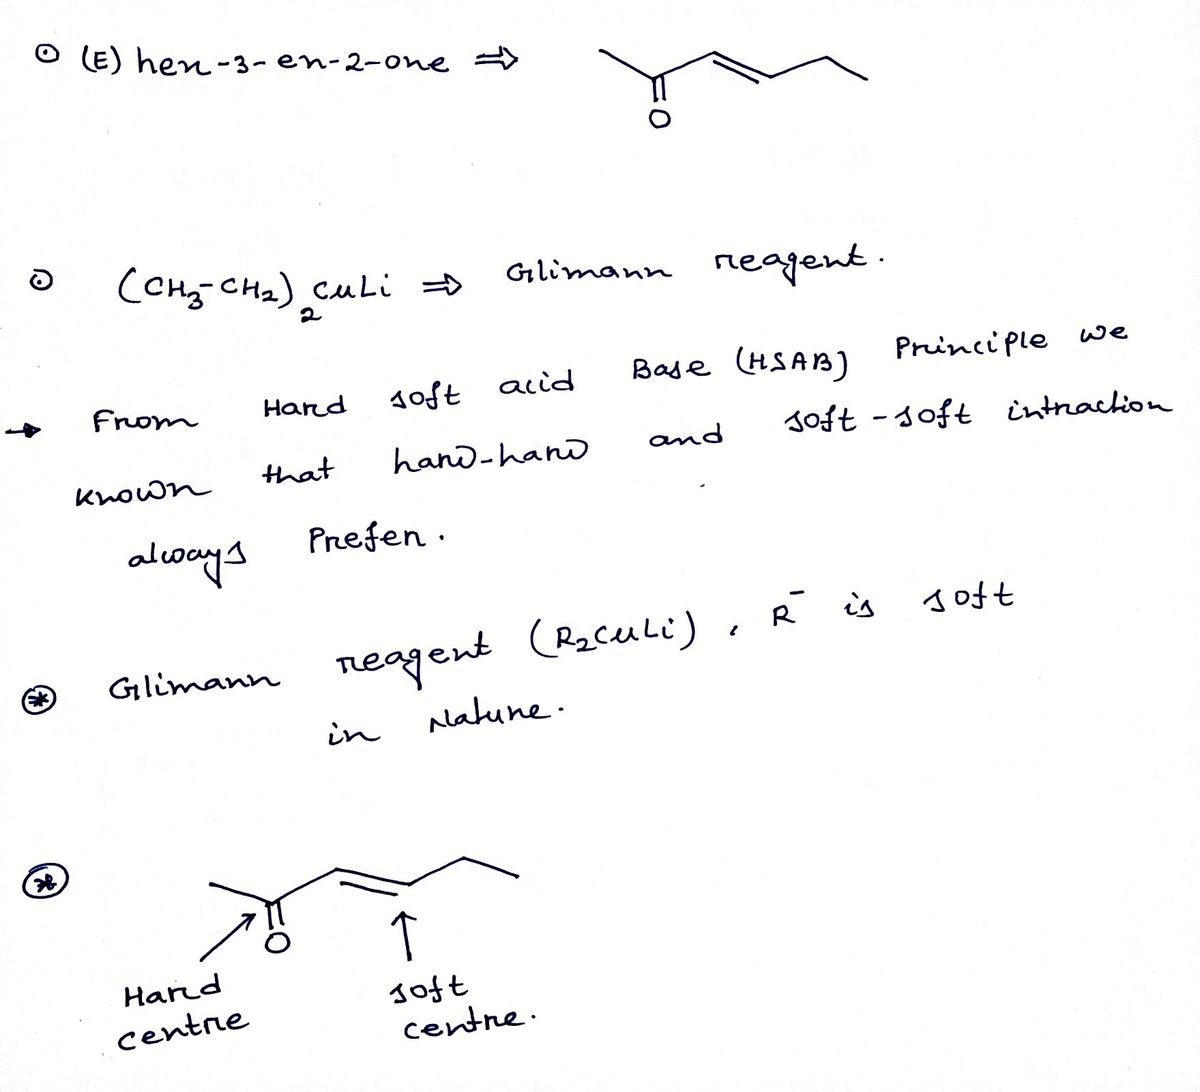 ⊙ (E) hex-3-en-2-one ⇒
O
⊙ (CH3-CH2)2CuLi ⇒ Glimann reagent.
→ From Hard soft acid Base (HSAB) Principle we
known that hard-hard and soft-soft intraction
always Prefer.
⊛ Glimann reagent (R2CuLi), R⁻ is soft
in Nature.
⊛
O
Hard
centre
soft
centre.